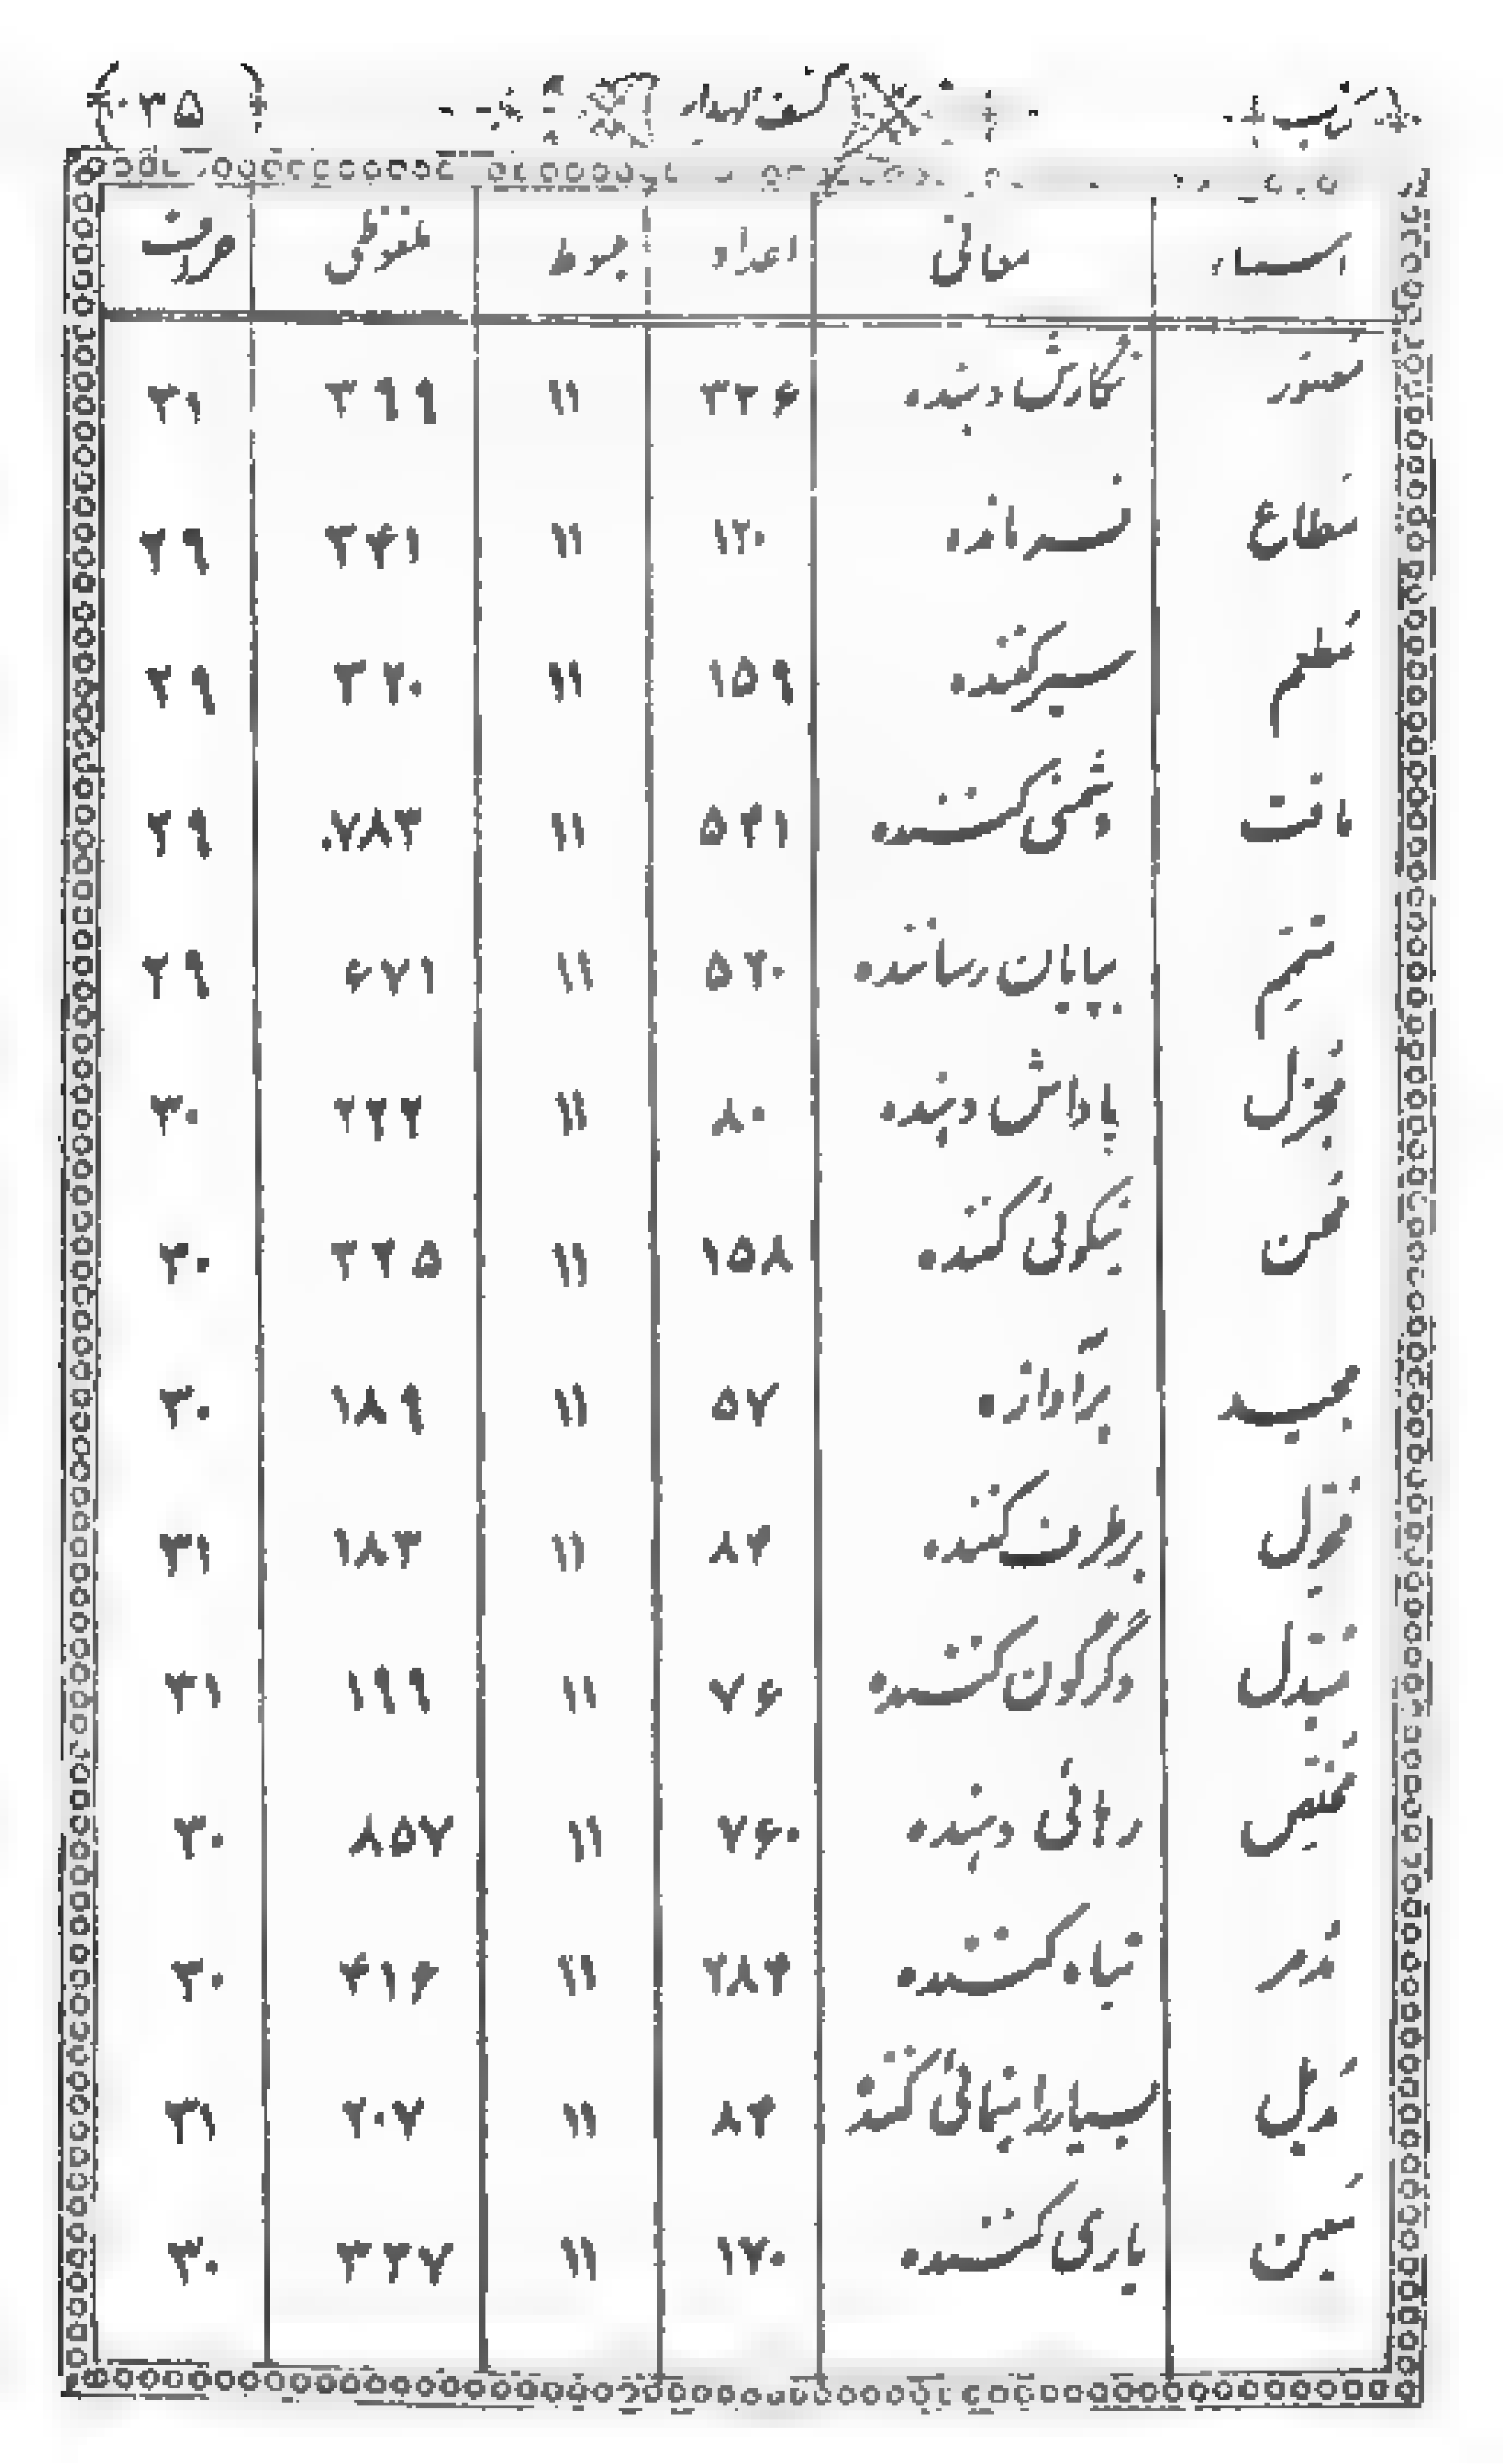 (۰۳۵)
اسماء معانی اعداد هبوط ملفوظی حروف
مصور نگارش دهنده ۳۳۶ ۱۱ ۳۹۹ ۳۱
مطاع فرمانده ۱۲۰ ۱۱ ۳۴۱ ۲۹
مطعم سیر کننده ۱۵۹ ۱۱ ۳۲۰ ۲۹
ماقت دشمنی کننده ۵۴۱ ۱۱ ۷۸۳ ۲۹
متمم بپایان رساننده ۵۲۰ ۱۱ ۶۷۱ ۲۹
مجزل پاداش دهنده ۸۰ ۱۱ ۲۲۲ ۳۰
محسن نیکوئی کننده ۱۵۸ ۱۱ ۳۲۵ ۳۰
مجید پرآوازه ۵۷ ۱۱ ۱۸۹ ۳۰
محول برطرف کننده ۸۴ ۱۱ ۱۸۳ ۳۱
مبدل دگرگون کننده ۷۶ ۱۱ ۱۹۹ ۳۱
مخلص رهائی دهنده ۷۶۰ ۱۱ ۸۵۷ ۳۰
مدمر تباه کننده ۲۸۴ ۱۱ ۴۱۶ ۳۰
مدیل ۸۴ ۱۱ ۲۰۷ ۳۱
معین یاری کننده ۱۷۰ ۱۱ ۳۲۷ ۳۰